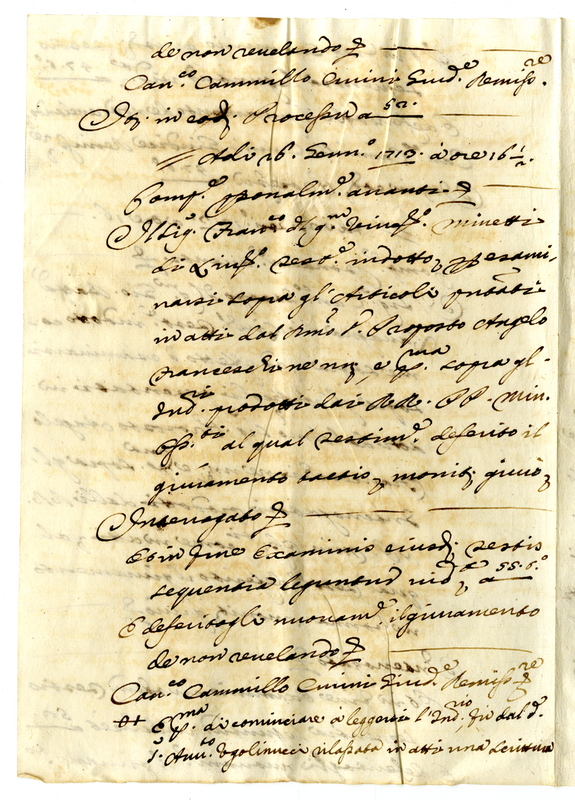 de non revelando &
Can.co Cammillo Cinini Giud.e Remiss.re
It. in eod. Processu a 52.
Adi 16. Genn.o 1713. à ore 16 1/2.
Comp.e pronalm.e avanti &
Il Sig. Fran.co d. q.m minetti
di test.e indotto esami,
narsi sopra gl'Articoli
in atti dal Rmo P. Proposto Angelo
Franceschi ne n, e p.ma sopra gl'
Ind.ri prodotti dai RR. PP. Min.
Oss.ti al qual testim.e deferito il
giuramento tactis, monit, giurò,
Interrogato &
Et in fine Examinis eiusd. testis
sequentia leguntur vid. a 55. 6.o
E deferitogli nuovam.e il giuramento
de non revelando &
Can.co Cammillo Cinini Giud.e Remiss.re &
E p.ma di cominciare à leggersi l'Ind.rio, fu dal d.
S. Ugolinucci rilassata in atti una scrittura